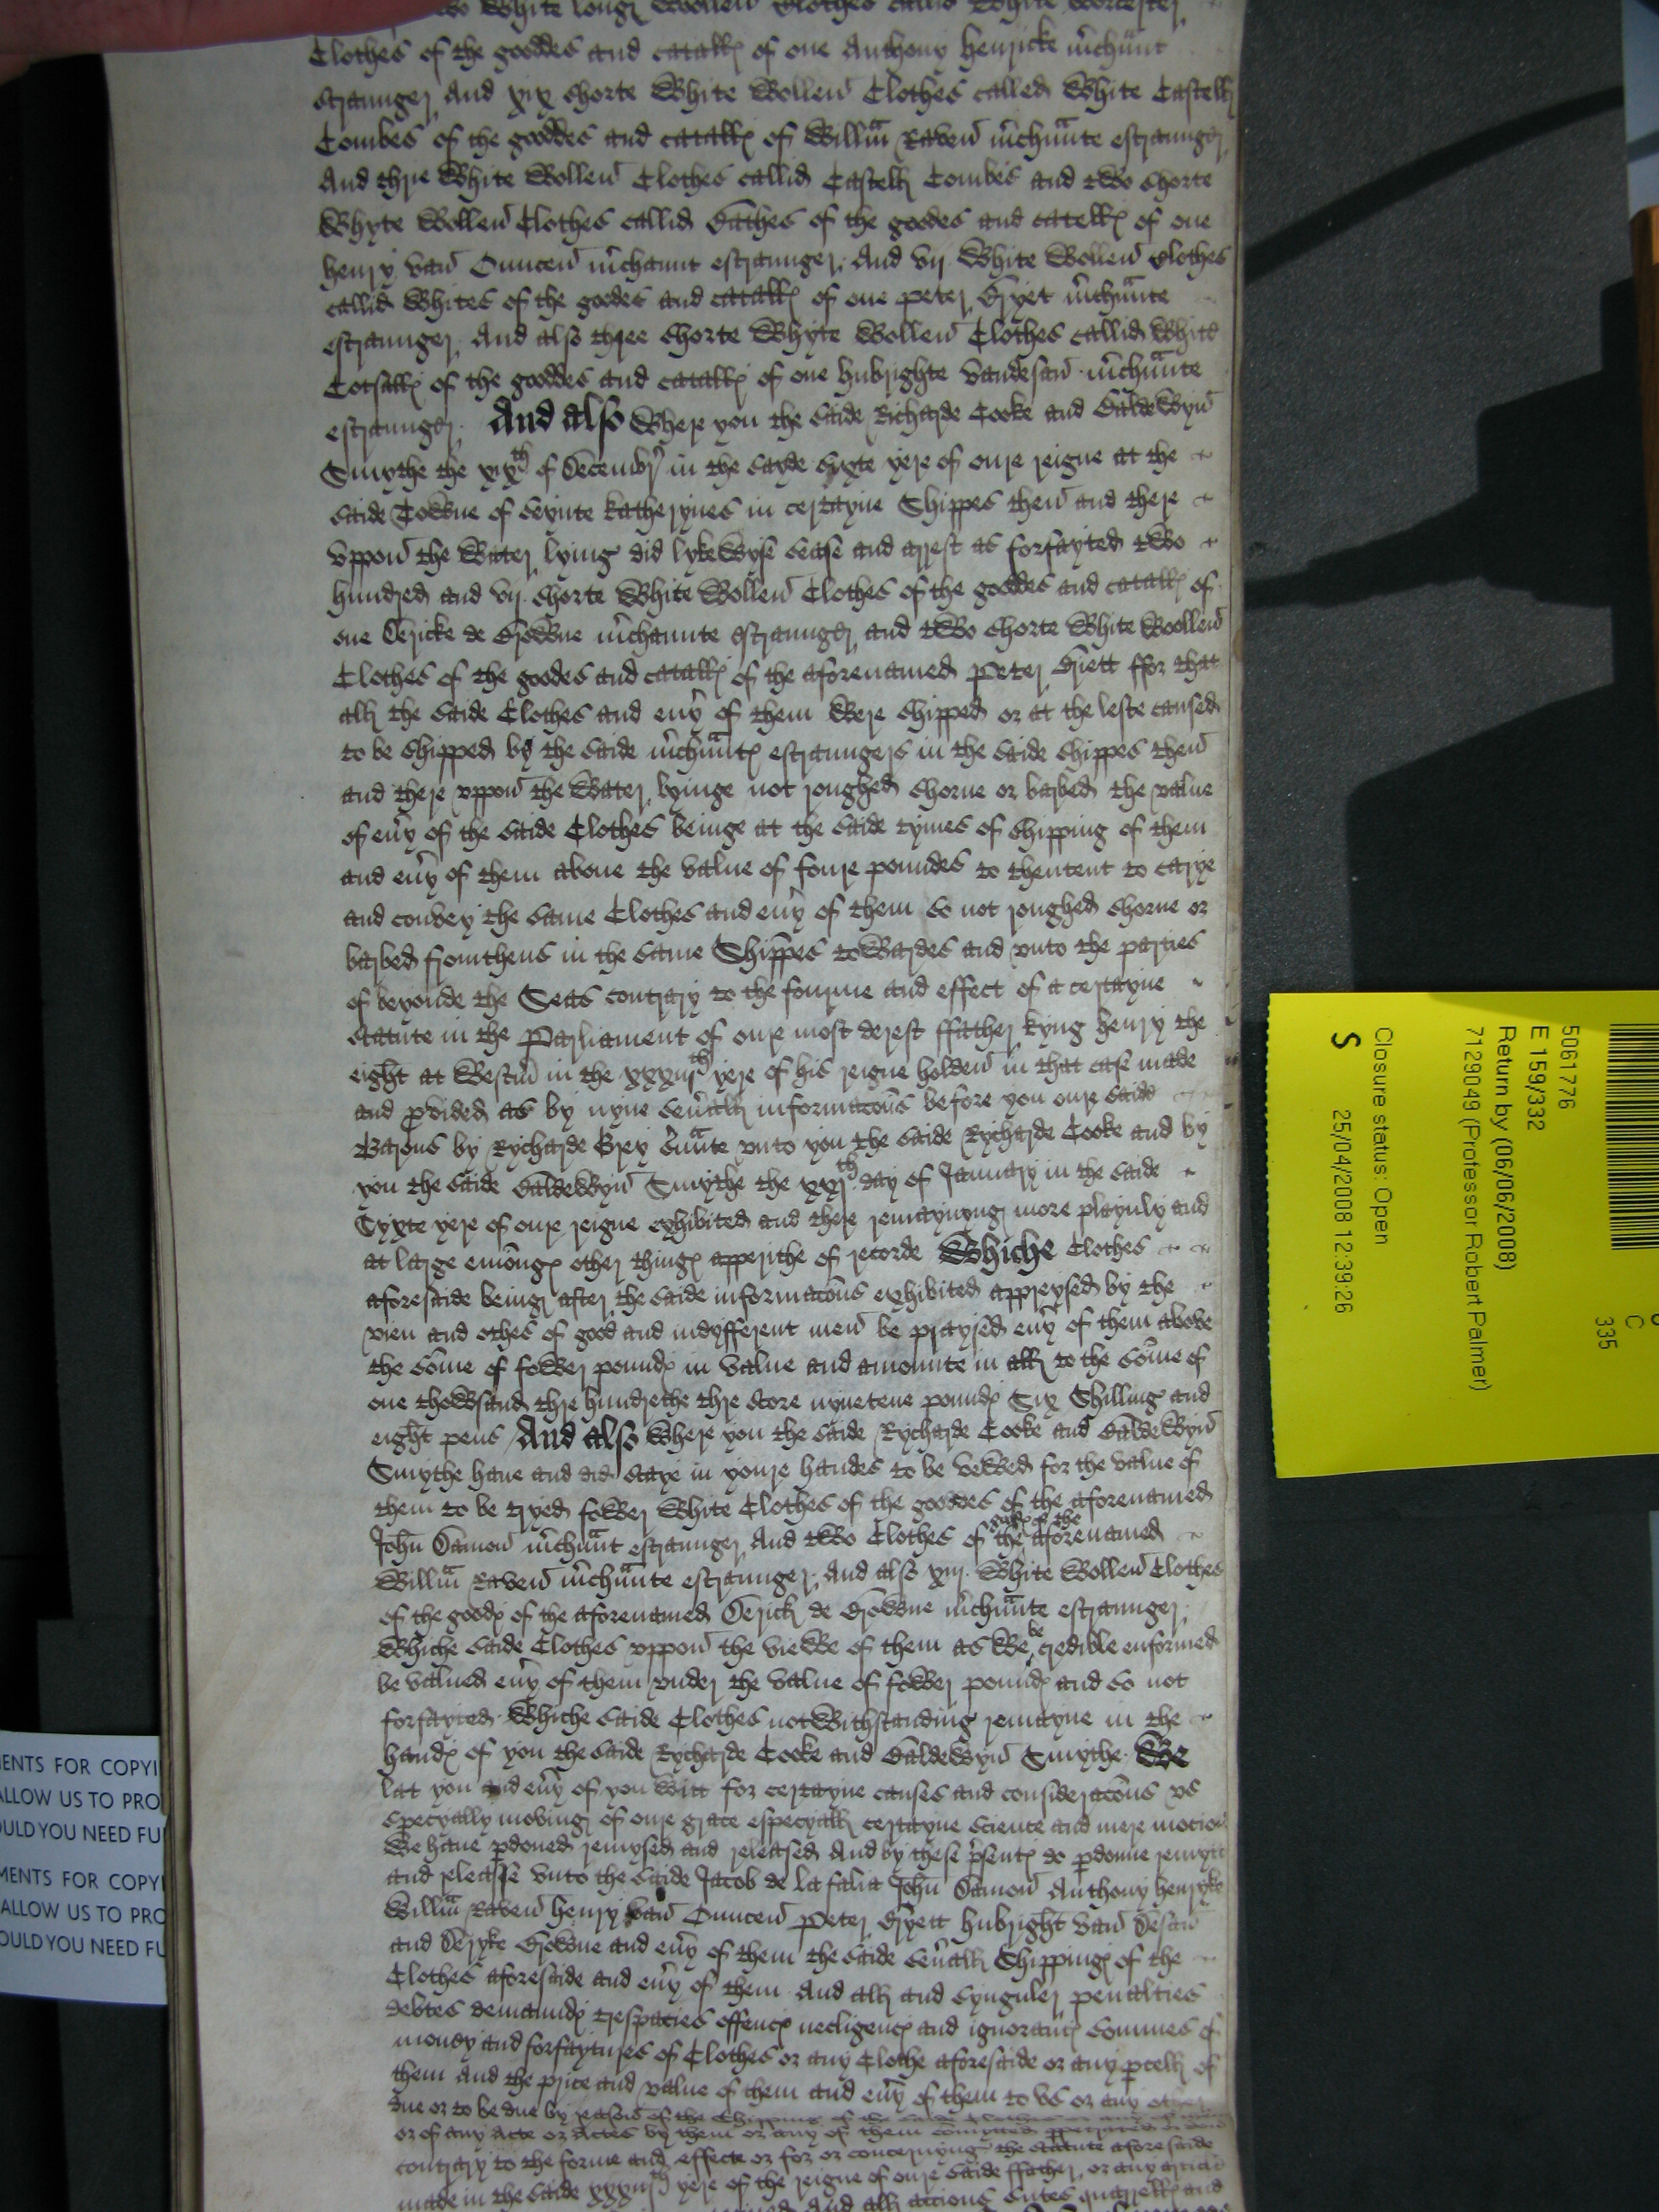 two White long Wollen Clothes callid White Worcester
Clothes of the gooddes and catallꝭ of one Anthony Henricke m̃chñt
straunger And xix shorte White Wollen Clothes called White Castell
Combes of the gooddes and catallꝭ of Willm̃ Raven m̃chñte estraunger
And thre White Wollen Clothes callid Castell Combes and two shorte
Whyte Wollen Clothes callid Bathes of the goodes and catellꝭ of one
henry van Ouncen m̃chaunt estraunger And vij White Wollen Clothes
callid Whites of the goodes and catallꝭ of one peter Gryet m̃chñte
estraunger And also three shorte Whyte Wollen Clothes callid White
Cotsallꝭ of the gooddes and catallꝭ of one hubrighte vandesan m̃chñte
estraunger And also Where you the saide Richarde Cooke and Baldewyn
Smythe the xixth of Decembr̃ in the sayde syxte yere of oure reigne at the
saide Towne of Seynte Katherynes in certayne Shippes then and there
vppon the Water lying did lykewyse sease and arrest as forfayted two
hundred and vij shorte White Wollen Clothes of the gooddes and catallꝭ of
one Dericke de Growne m̃chaunte estraunger and two shorte White Woollen
Clothes of the goodes and catallꝭ of the aforenamed Peter Griett ffor that
all the saide Clothes and eny of them Were shipped or at the leste caused
to be shipped by the saide m̃chñtꝭ estraungers in the saide shippes then
and there vppon the Water lyinge not roughed shorne or barbed the value
of eṽy of the saide Clothes beinge at the saide tymes of shipping of them
and eṽy of them above the value of foure poundes to thentent to carye
and convey the same Clothes and eṽy of them so not roughed shorne or
barbed fromthens in the same Shippes towardes and vnto the parties
of beyonde the Seas contrary to the fourme and effect of a certayne
statute in the Parliament of oure most derest ffather kyng henry the
eight at Westm̃ in the xxxiijth yere of his reigne holden in that case made
and ꝓvided as by nyne sẽṽall informacõns before you oure saide
Barons by Rycharde Grey s̃ṽnte vnto you the saide Rycharde Cooke and by
you the saide Baldewyn Smythe the xxjth day of January in the saide
Syxte yere of oure reigne exhibited and there remaynyng more playnly and
at large emõngꝭ other thingꝭ apperithe of recorde Whiche Clothes
aforesaide being after the saide informacõns exhibited appreysed by the
vien and othes of good and indyfferent men be prayied eṽy of them above
the sõme of fower poundꝭ in value and amounte in all to the sõme of
one thowsand thre hundrethe thre score nynetene poundꝭ Six Shillingꝭ and
eight pens And also Where you the saide Rycharde Cooke and Baldewyn
Smythe have and did staye in youre handes to be vewed for the value of
them to be tryed fower White Clothes of the gooddes of the aforenamed
John Damon m̃chñt estraunger And two Clothes of the goodꝭ of the aforenamed
Willm̃ Raven m̃chñte estraunger And also xiij White Wollen Clothes
of the goodꝭ of the aforenamed Derick de Growne m̃chñte estraunger
Whiche saide Clothes vppon the viewe of them as We be credible enformed
be valued eṽy of them vnder the value of fower poundꝭ and so not
forfayted Whiche saide Clothes notwithstanding remayne in the
handꝭ of you the saide Rycharde Cooke and Baldewyn Smythe We
lat you and eṽy of you witt for certayne causes and consideracõns vs
specyally moving of oure grace especyall certayne science and mere motion
We have ꝑdoned remysed and released And by these p̃sentꝭ do ꝑdonne remytt
and release vnto the saide Jacob de la falia John Damon Anthony henryke
Willm̃ Raven henry van Ouncen Peter Gryett hubright van Desan
and Deryke Growne and eṽy of them the saide sẽṽall Shippingꝭ of the
Clothes aforesaide and eṽy of them And all and synguler penalties
debtes demaundꝭ trespacies offencꝭ necligencꝭ and ignorantꝭ sommes of
money and forfaytures of Clothes or any Clothe aforesaide or any ꝑcell of
them And the price and value of them and eṽy of them to vs or any other
due or to be due by reason of the Shipping of the saide Clothes or any of them
or of any Acte or Actes by them or any of them
contrary to the forme and effecte or for or concernyng the statute aforesaide
made in the saide xxxiijth yere of the reigne of oure saide ffather or any article
And all accions sutes quarellꝭ and
5061776
E 159/332
Return by (06/06/2008)
7129049 (Professor Robert Palmer)
Closure status: Open
S
25/04/2008 12:39:26
C
335
MENTS FOR COPYI
ALLOW US TO PRO
OULD YOU NEED FU
MENTS FOR COPYI
ALLOW US TO PRO
OULD YOU NEED FU